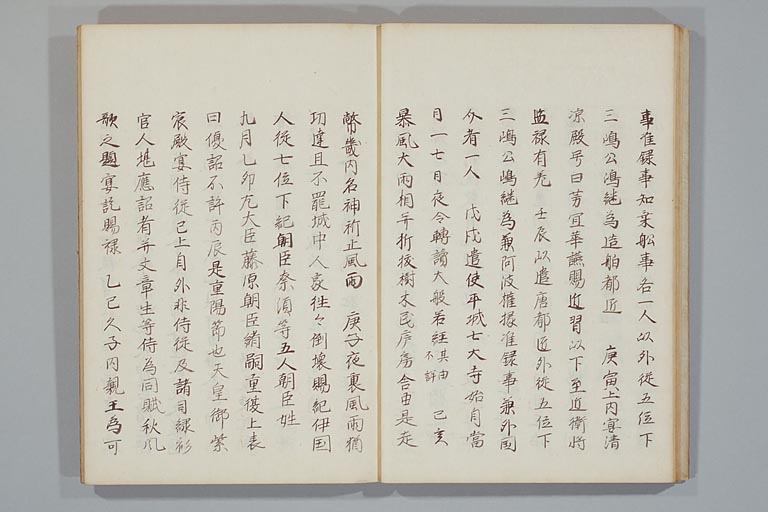 事准録事知乗舩事各一人以外従五位下
三嶋公嶋継為造舶都匠　庚寅上内宴清
凉殿号曰芳宜華讌賜近習以下至近衛将
監禄有差　壬辰以遣唐都匠外従五位下
三嶋公嶋継為兼阿波権掾准録事兼外国
介者一人　戊戌遣使平城七大寺始自当
月一七日夜令転読大般若経其由不詳　己亥
暴風大雨相并折抜樹木民庐房舎由是走
幣畿内名神祈止風雨　庚子夜裏風雨猶
切達且不罷城中人家徃々倒壊賜紀伊国
人従七位下紀朝臣奈須等五人朝臣姓
九月乙卯左大臣藤原朝臣緒嗣重復上表
曰優詔不許丙辰是重陽節也天皇御紫
宸殿宴侍従已上自外非侍従及諸司緑衫
官人堪應詔者并文章生等侍焉同賦秋風
歌之題宴訖賜禄　乙巳久子内親王為可